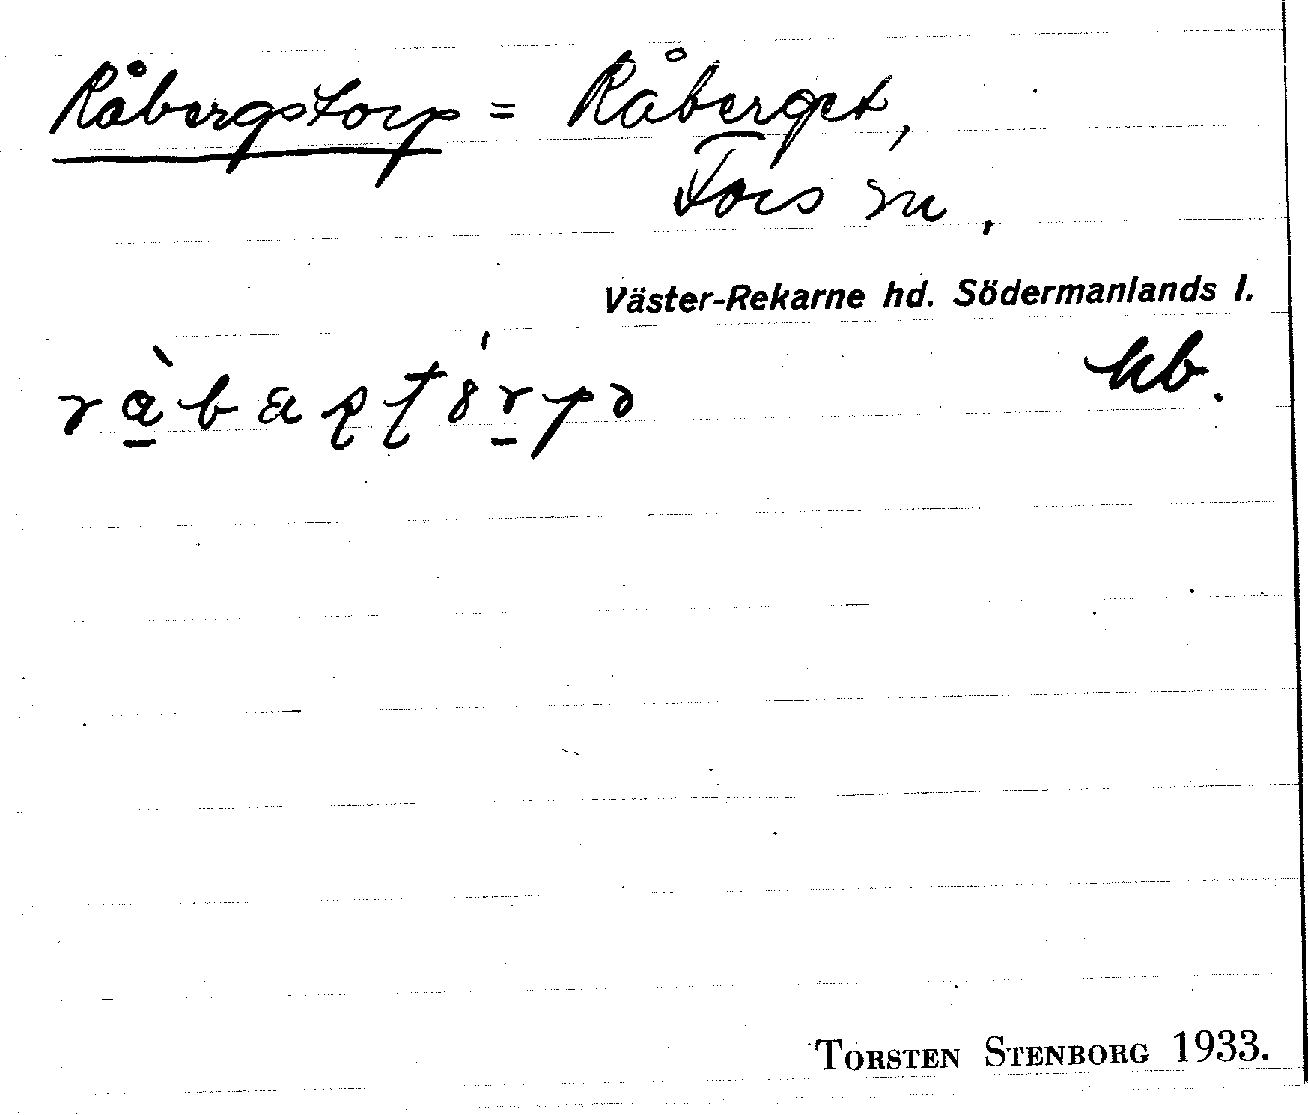 Råbergstorp = Råberget,
Tors sn,
Väster-Rekarne hd. Södermanlands l.
kb.
TORSTEN STENBORG 1933.